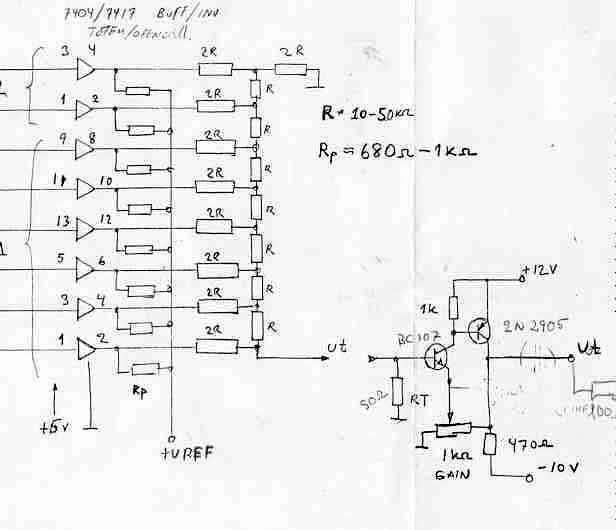 7404/7417 BUFF/INV
TOTEM/OPENCOLL.
3 4 2R 2R
R
1 2 2R
R
R = 10-50KΩ
9 8 2R
R
Rp = 680Ω - 1KΩ
11 10 2R
R
13 12 2R
R
5 6 2R
R
3 4 2R
R
1 2 2R
Rp
+5V
+UREF
Ut
+12V
1k
BC107
2N2905
Ut
50Ω RT
1KΩ
GAIN
470Ω
-10V